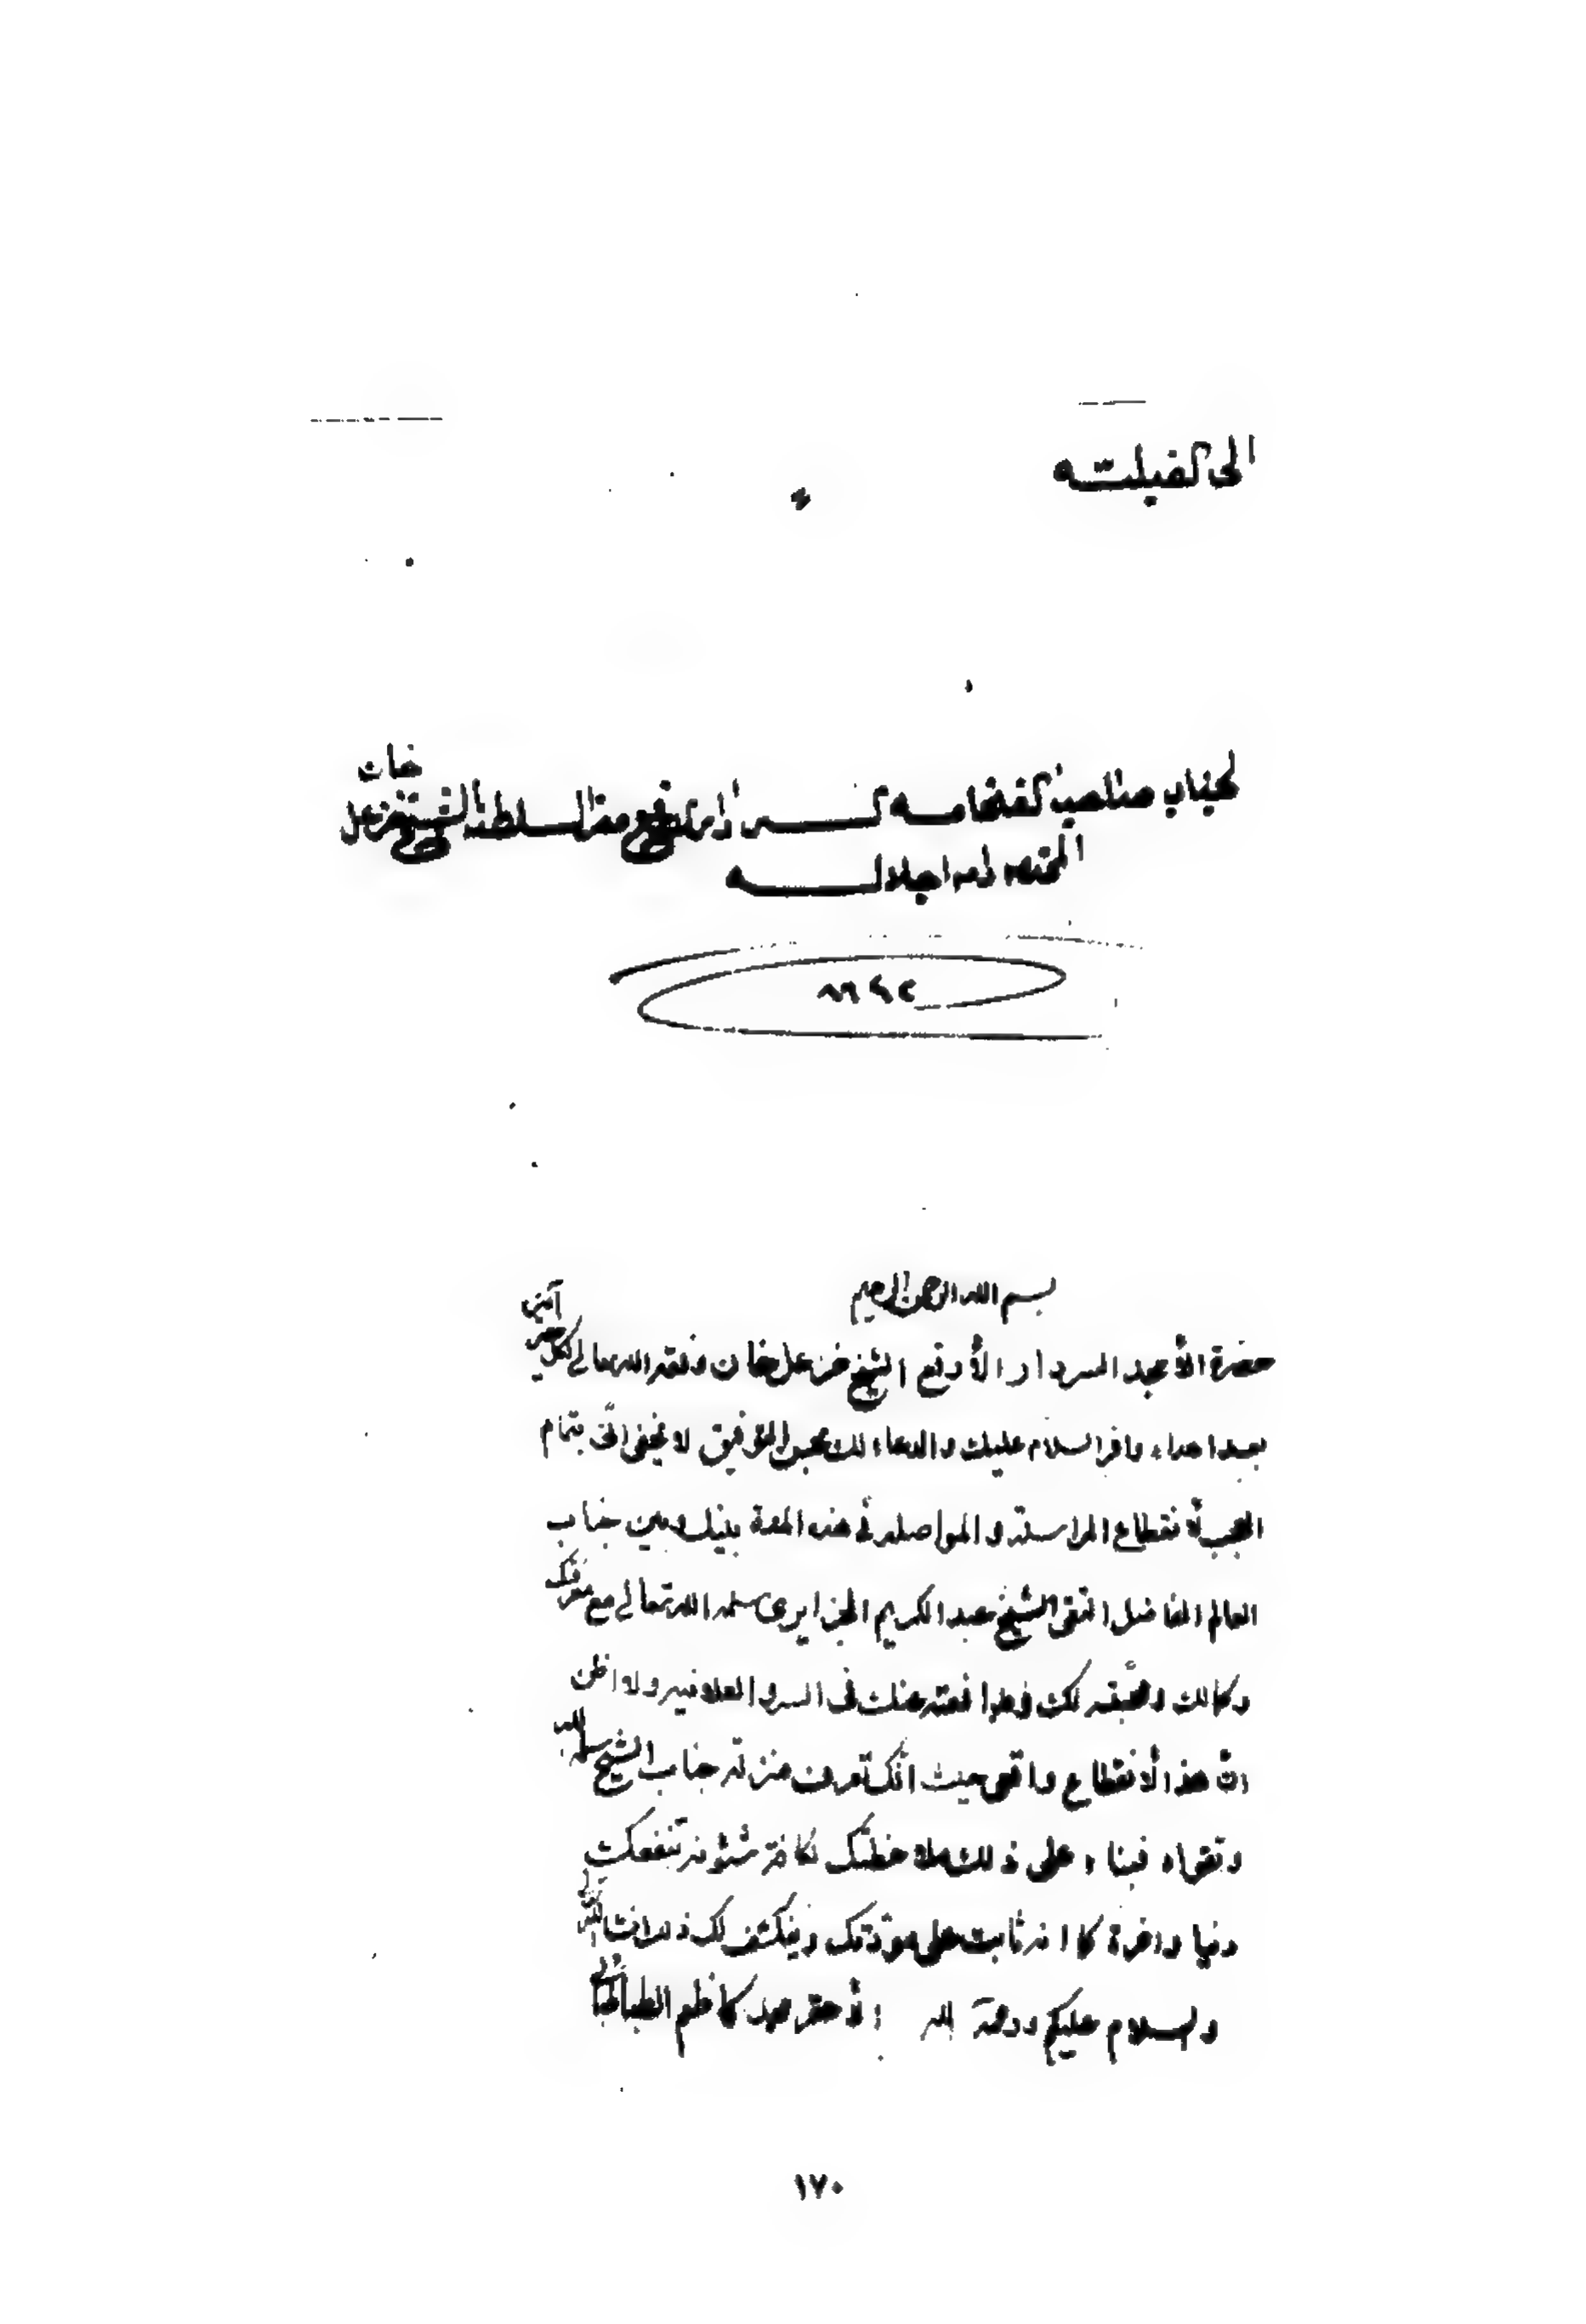 الى الفيلية
لجناب صاحب الفخامة السردار ارفع معز السلطنة الشيخ خزعل خان
المحترم دام اجلاله
٨٦٤٢
بسم الله الرحمن الرحيم
حضرة الأمجد السردار الأرفع الشيخ خزعل خان وفقه الله تعالى لكل خير آمين
بعد اهداء وافر السلام عليك والدعاء لك بمحبس التوفيق لا يخفى انّي بتمام
العجب لأنقطاع المراسلة والمواصلة في هذه المدة بينك وبين جناب
العالم الفاضل التقي الشيخ عبد الكريم الجزايري سلمه الله تعالى مع معرفتك
وكمالك ومحبّته لك ومدافعته عنك في السر والعلانية ولا اظن
انّ هذا الأنقطاع واقعي حيث انّك تعرف منزلة جناب الشيخ سلمه الله
وتقواه فبناء على ذلك ملاحظتك لكافة شؤونه تنفعك
دنيا واخرة كما انه ثابت على مودّتك وينكشف لك ذلك انشاء
والسلام عليكم ورحمة الله الأحقر محمد كاظم الطباطبائي
١٧٠